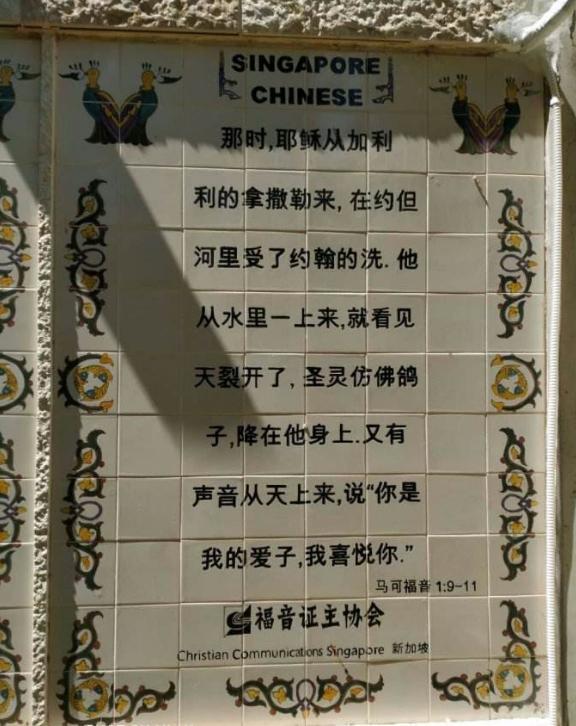 SINGAPORE
CHINESE
那时,耶稣从加利
利的拿撒勒来, 在约但
河里受了约翰的洗. 他
从水里一上来,就看见
天裂开了, 圣灵仿佛鸽
子,降在他身上.又有
声音从天上来,说“你是
我的爱子,我喜悦你.”
马可福音 1:9-11
福音证主协会
Christian Communications Singapore 新加坡